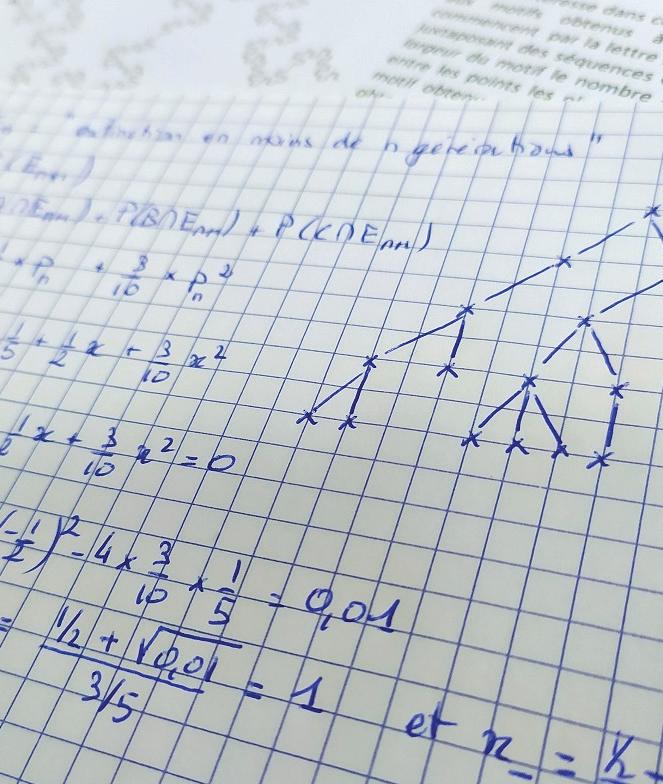 resse dans c
aux motifs obtenus à
commencent par la lettre
juxtaposant des séquences
longueur du motif le nombre
entre les points les
motif obtenu
: "extinction en moins de n générations"
(Eₙ₊₁)
∩Eₙ₊₁) + P(B∩Eₙ₊₁) + P(C∩Eₙ₊₁)
× pₙ + 3/10 × pₙ²
1/5 + 1/2 x + 3/10 x²
1/2 x + 3/10 x² = 0
(-1/2)² - 4 × 3/10 × 1/5 = 0,01
= (1/2 + √0,01) / (3/5) = 1 et x₋ = 1/2 -